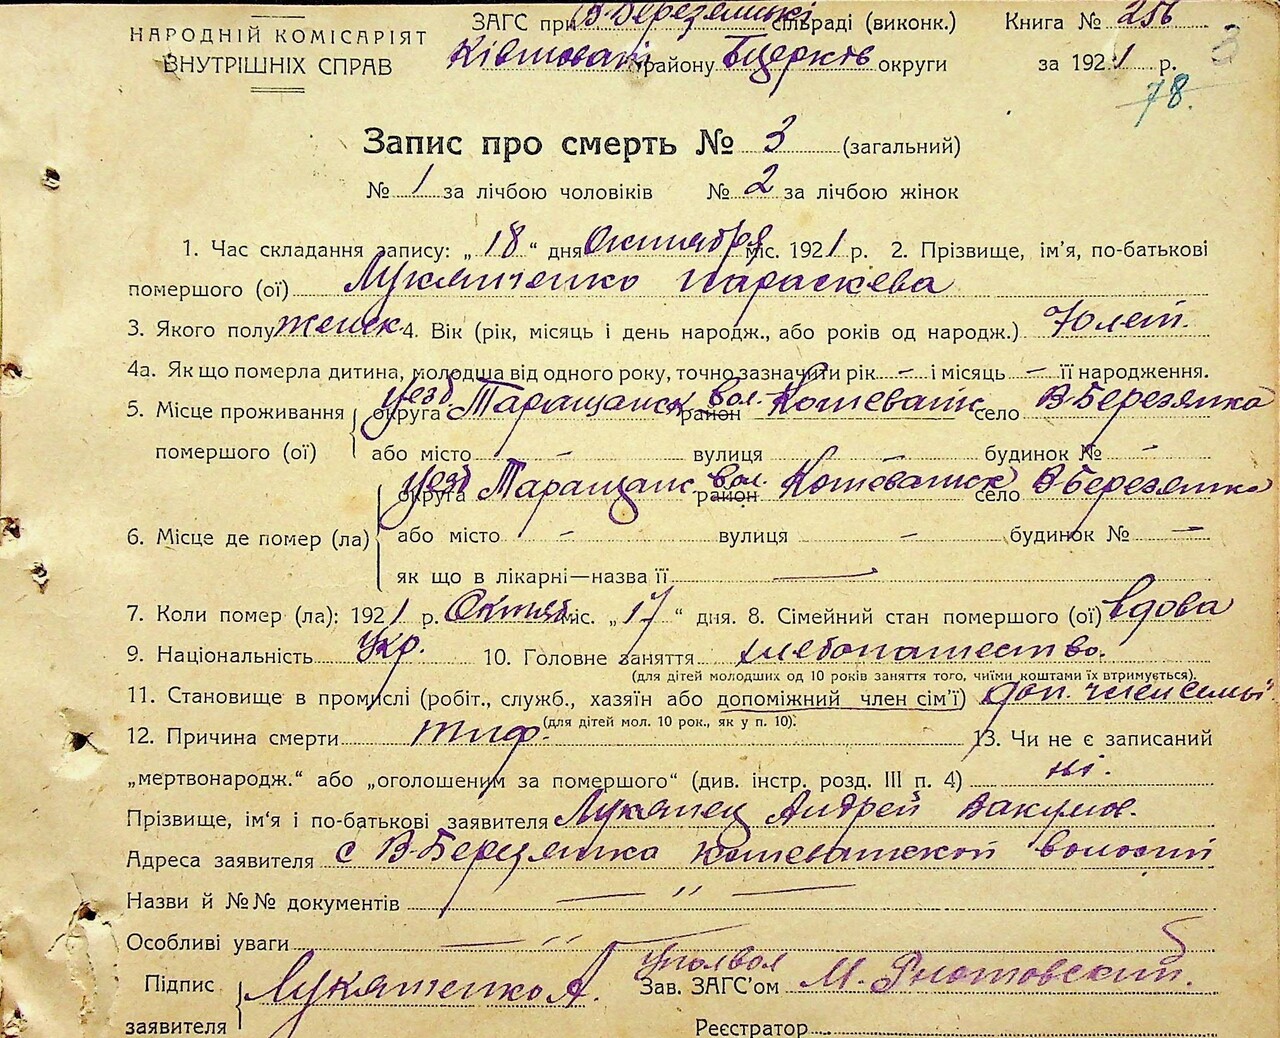 НАРОДНІЙ КОМІСАРІЯТ
ВНУТРІШНІХ СПРАВ
ЗАГС при В-Березянскі сільраді (виконк.)
району Бцерков округи
Книга № 256
за 1921 р.
3
78.
Запис про смерть № 3 (загальний)
№ 1 за лічбою чоловіків № 2 за лічбою жінок
1. Час складання запису: „18“ дня Октября міс. 1921 р. 2. Прізвище, ім'я, по-батькові
помершого (ої) Лукятченко Параскева
3. Якого полу женск 4. Вік (рік, місяць і день народж., або років од народж.) 70 лет.
4а. Як що померла дитина, молодша від одного року, точно зазначити рік – і місяць – її народження.
5. Місце проживання помершого (ої) округа уезд Таращанск район вол. Кошеватск село В-Березянка
або місто – вулиця – будинок № –
6. Місце де помер (ла) округа уезд Таращанск район вол. Кошеватск село В Березянка
або місто – вулиця – будинок № –
як що в лікарні—назва її —
7. Коли помер (ла): 1921 р. Октяб. міс. „17“ дня. 8. Сімейний стан помершого (ої) вдова
9. Національність Укр. 10. Головне заняття хлебопашество.
(для дітей молодших од 10 років заняття того, чиїми коштами їх втримується).
11. Становище в промислі (робіт., служб., хазяїн або допоміжний член сім'ї) доп. член семьи
(для дітей мол. 10 рок., як у п. 10).
12. Причина смерти тиф. 13. Чи не є записаний
„мертвонародж.“ або „оголошеним за помершого“ (див. інстр. розд. III п. 4) ні.
Прізвище, ім'я і по-батькові заявителя Лукятец Андрей Вакулов.
Адреса заявителя с В-Березянка кошеватской волости
Назви й №№ документів — „ —
Особливі уваги — „ —
Підпис заявителя Лукятченко А. Зав. ЗАГС'ом М.
Реєстратор